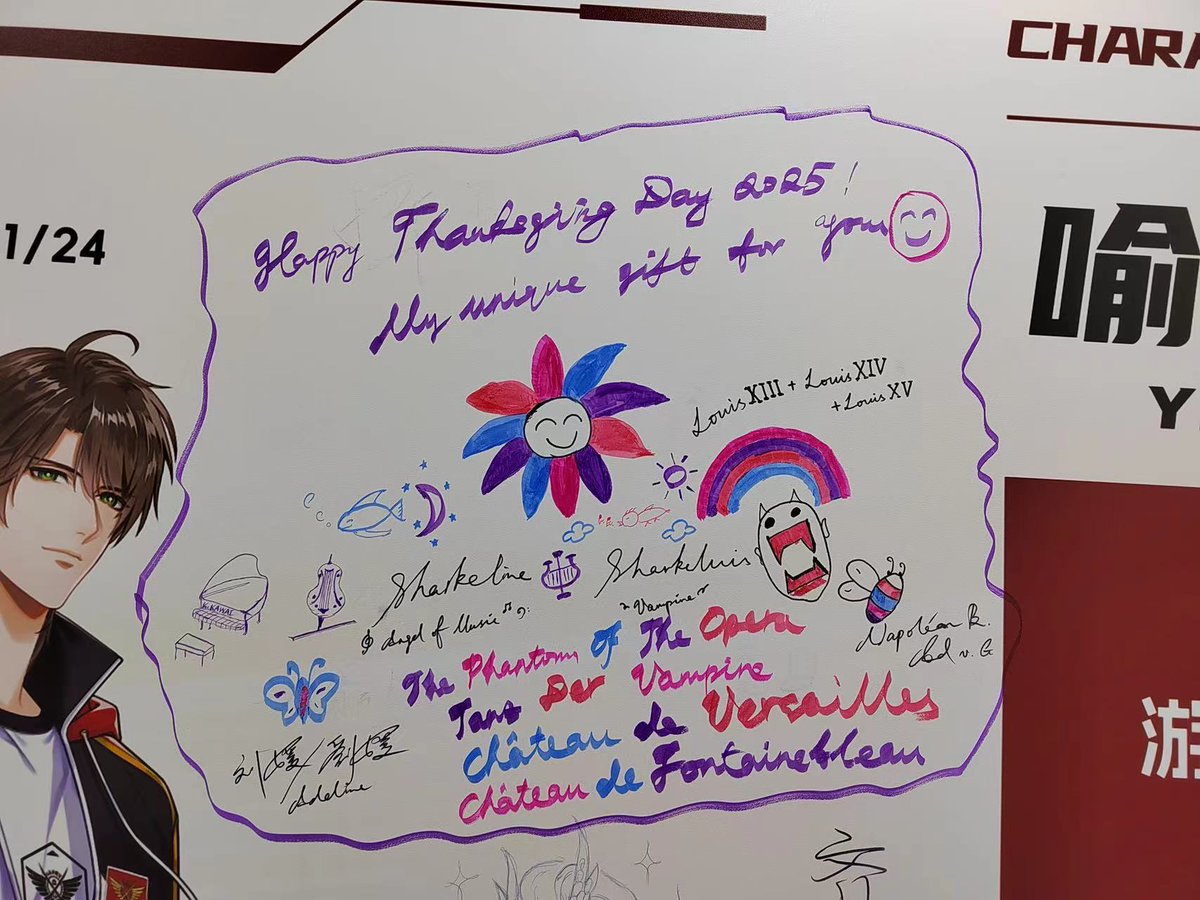 CHARA
1/24
喻
Y
Happy Thanksgiving Day 2025!
My unique gift for you
Louis XIII + Louis XIV
+ Louis XV
Sharkeline
Sharkeluis
Angel of Music
Vampire
K.KAWAI
Napoléon B.
The Phantom Of The Opera
Tanz Der Vampire
Château de Versailles
Château de Fontainebleau
Adeline
游